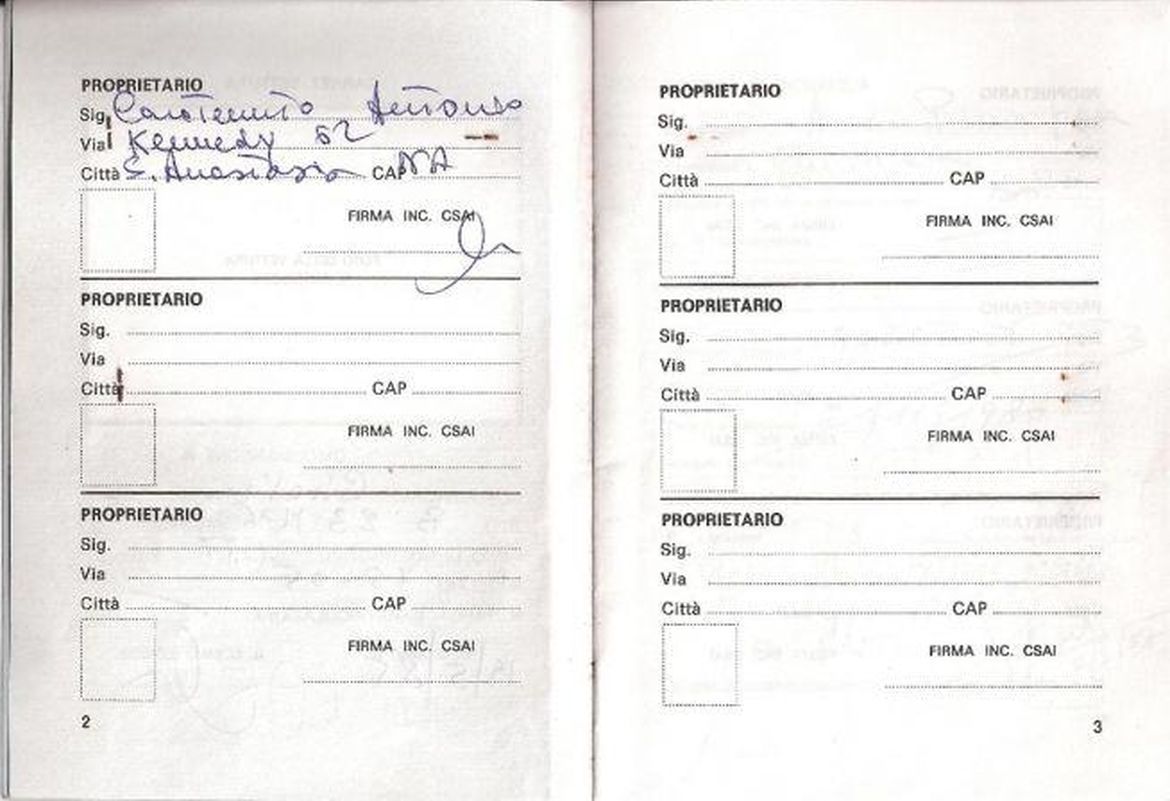 PROPRIETARIO
Sig. Carotenuto Antonio
Via Kennedy 62
Città S. Anastasia CAP NA
FIRMA INC. CSAI
PROPRIETARIO
Sig.
Via
Città CAP
FIRMA INC. CSAI
PROPRIETARIO
Sig.
Via
Città CAP
FIRMA INC. CSAI
2
PROPRIETARIO
Sig.
Via
Città CAP
FIRMA INC. CSAI
PROPRIETARIO
Sig.
Via
Città CAP
FIRMA INC. CSAI
PROPRIETARIO
Sig.
Via
Città CAP
FIRMA INC. CSAI
3